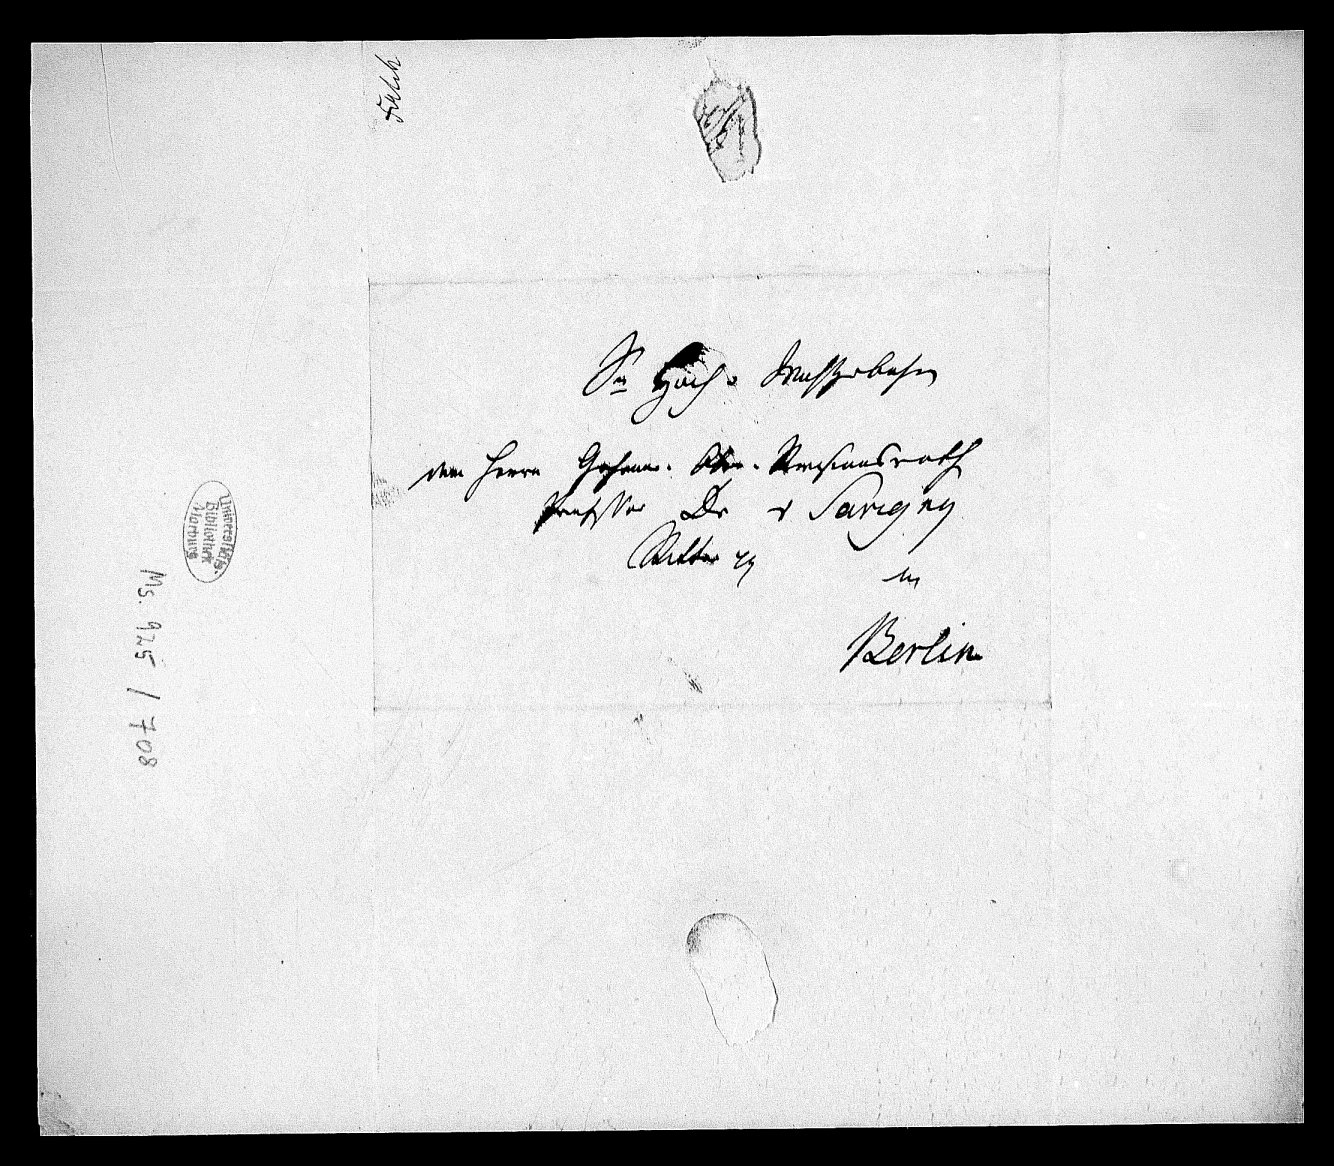 Falck
Sr Hoch- Wohlgeboren
dem Herrn Geheim. Ober-Revisionsrath
Professor Dr v Savigny
Ritter
in
Berlin
Universitäts-
Bibliothek
Marburg
Ms. 925 / 708